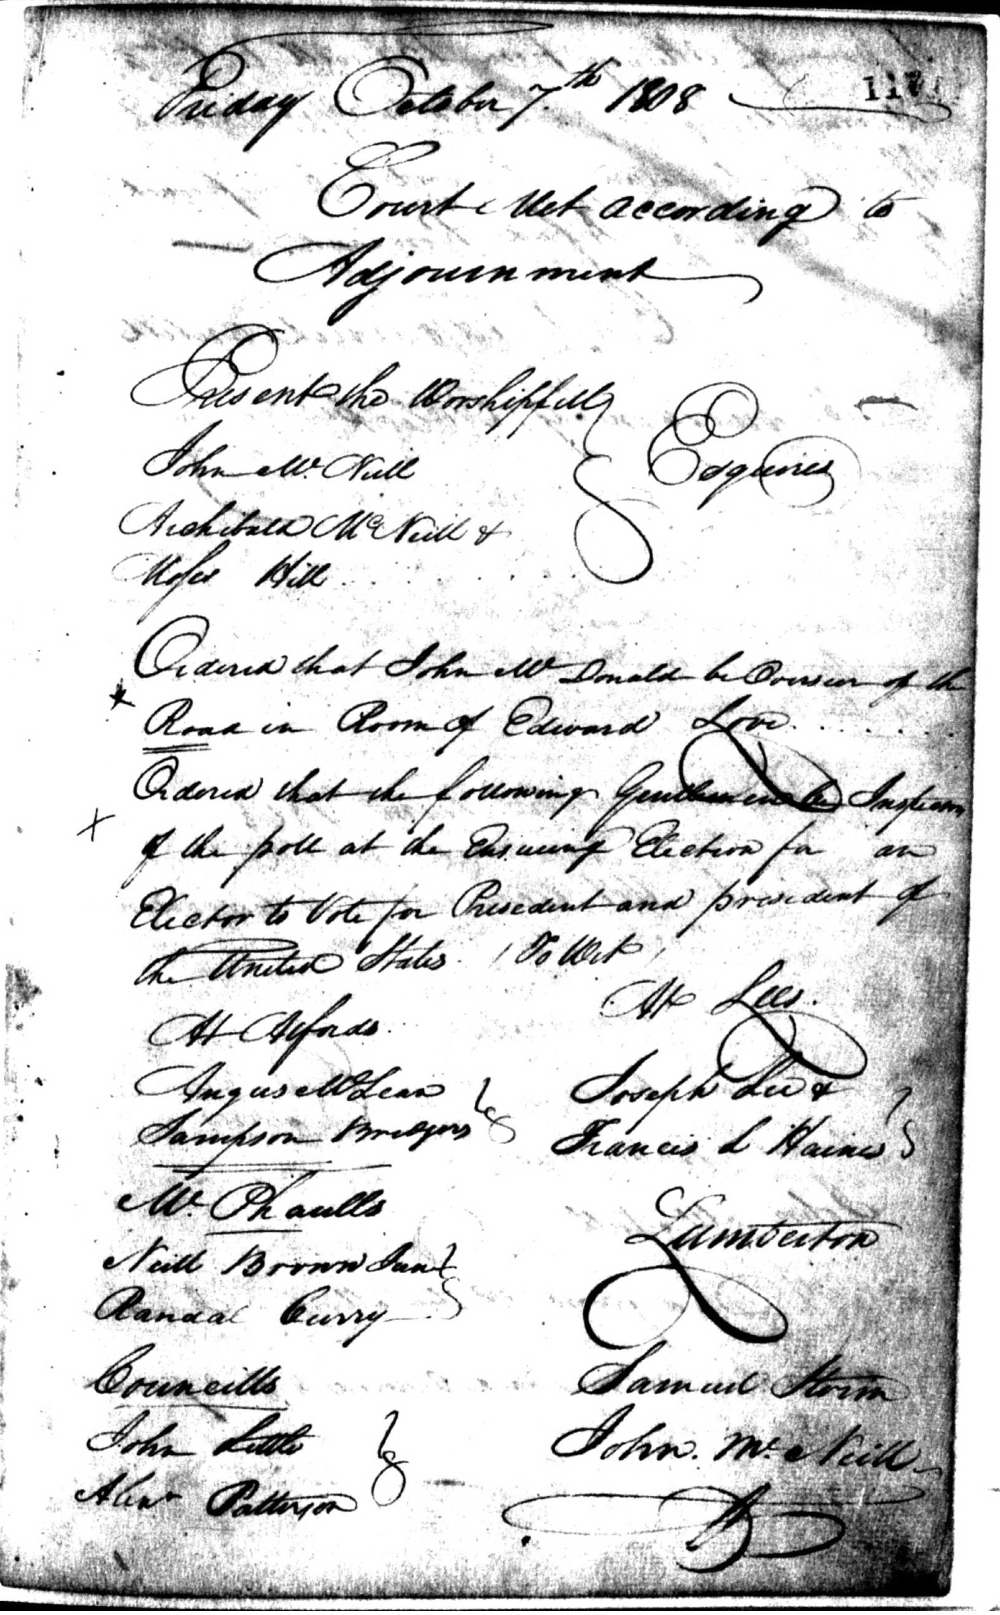 Friday October 7th 1808
Court Met according to
Adjournment
Present the Worshipfull
John Mc. Neill
Archibald McNeill &
Moses Hill
Esquires
Ordered that John Mc Donald be Overseer of the
Road in Room of Edward Love
Ordered that the following Gentlemen be
of the poll at the Ensueing Election for an
Elector to Vote for President and president of
the United States. To Wit
At Alfords.
Angus McLean
Sampson Bridgers
Mc. Phaulls
Neill Brown Junr
Randal Curry
Councills
John Little
Alexr Patterson
At Lees.
Joseph Lee &
Francis L Haines
Lumberton
Samuel Storm
John. Mc. Neill